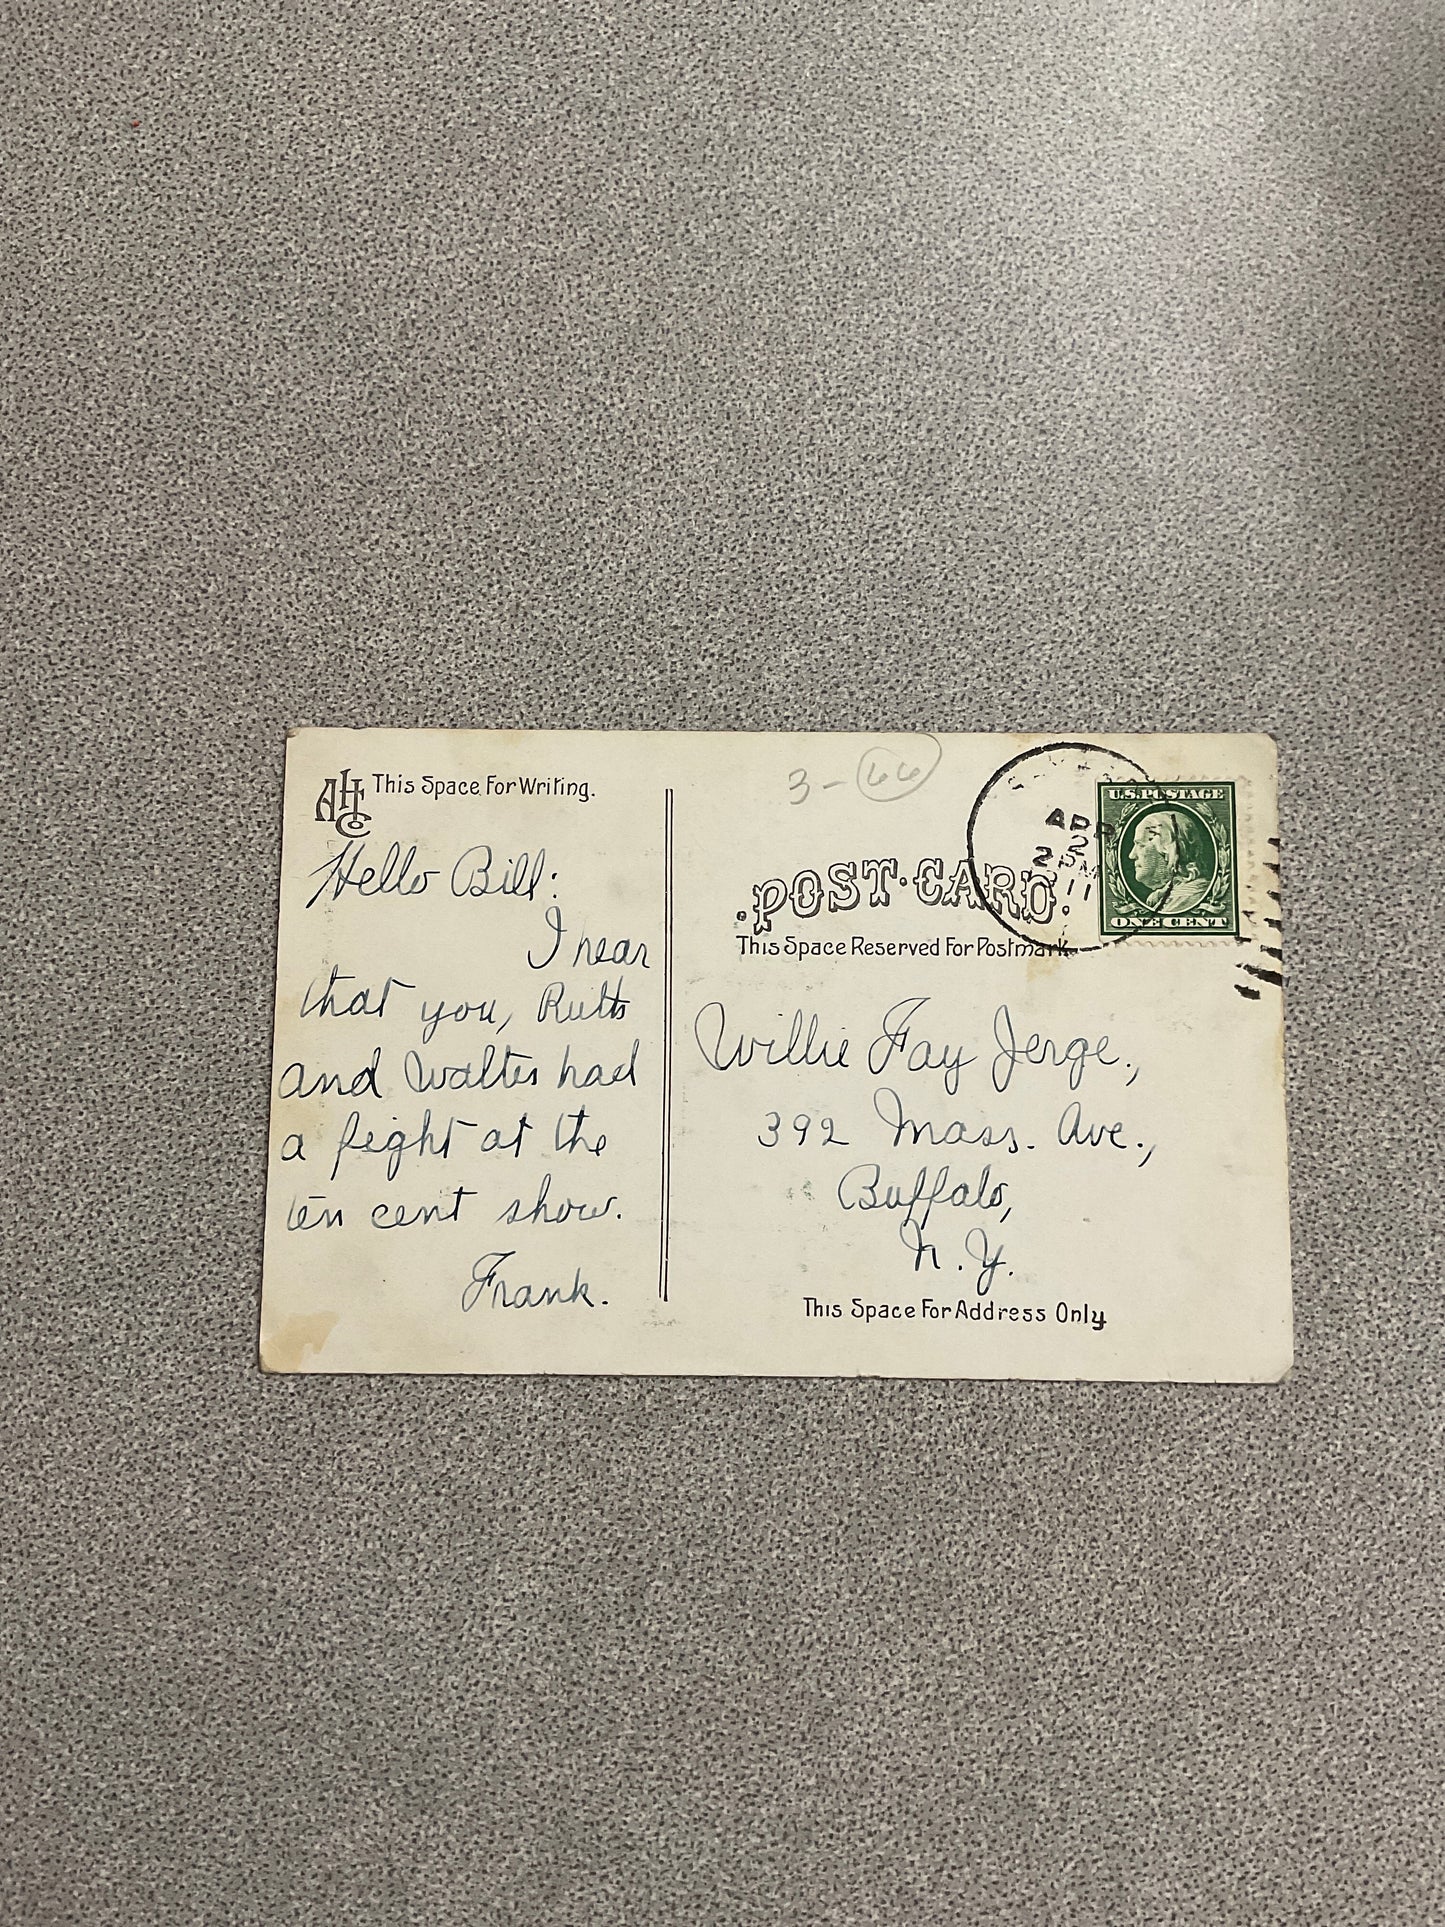 AHCo
This Space For Writing.
Hello Bill:
I hear
that you, Ruth
and Walter had
a fight at the
ten cent show.
Frank.
3-66
APR
2
2 PM
11
U.S. POSTAGE
ONE CENT
POST·CARD.
This Space Reserved For Postmark
Willie Fay Jerge.,
392 Mass. Ave.,
Buffalo,
N.Y.
This Space For Address Only